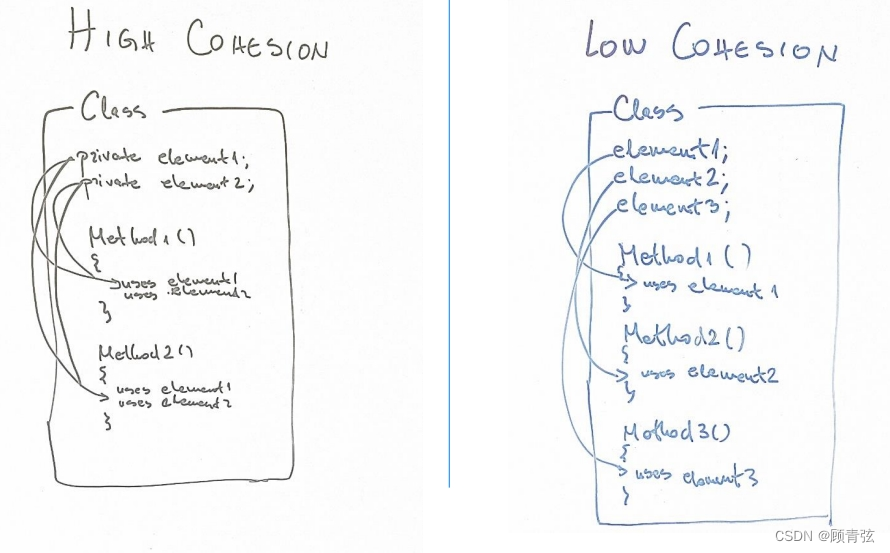 HIGH COHESION
Class
private element1;
private element2;
Method1()
{
uses element1
uses element2
}
Method2()
{
uses element1
uses element2
}
LOW COHESION
Class
element1;
element2;
element3;
Method1()
{
uses element1
}
Method2()
{
uses element2
}
Method3()
{
uses element3
}
CSDN @顾青弦